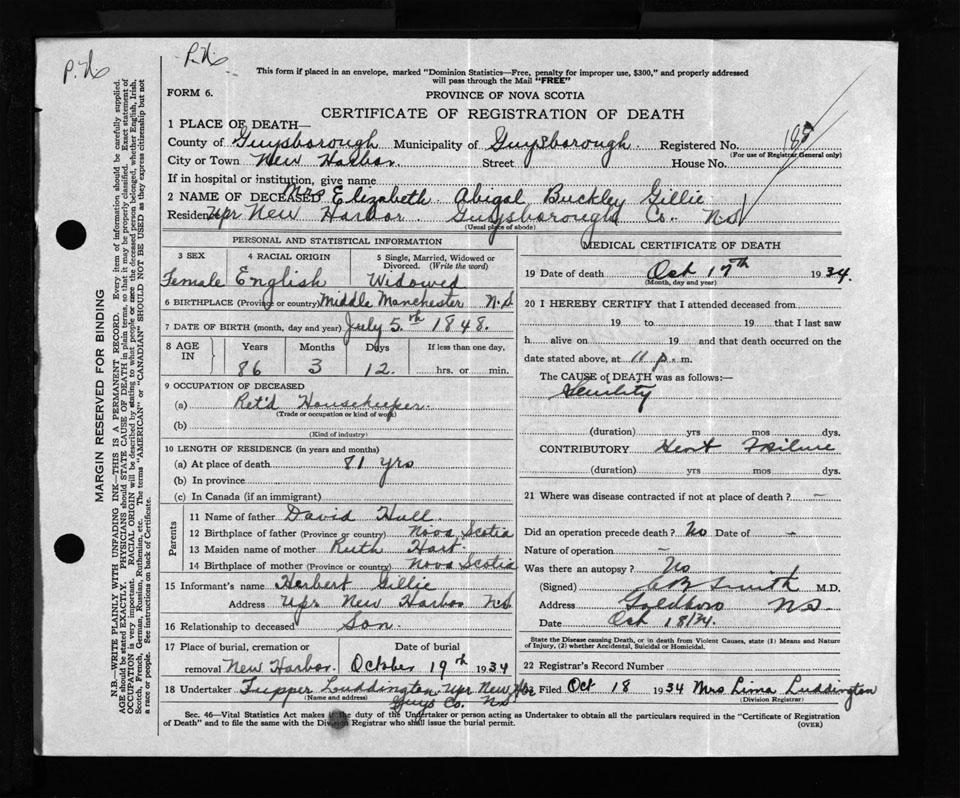 P. N
P. N
This form if placed in an envelope, marked "Dominion Statistics—Free, penalty for improper use, $300," and properly addressed
will pass through the Mail "FREE"
FORM 6.
PROVINCE OF NOVA SCOTIA
CERTIFICATE OF REGISTRATION OF DEATH
185
1 PLACE OF DEATH—
County of Guysborough Municipality of Guysborough. Registered No.
(For use of Registrar General only)
City or Town New Harbor Street House No.
If in hospital or institution, give name
2 NAME OF DECEASED Mrs Elizabeth Abigal Buckley Gillie
Residence Upr New Harbor Guysborough Co. N.S
(Usual place of abode)
PERSONAL AND STATISTICAL INFORMATION
3 SEX 4 RACIAL ORIGIN 5 Single, Married, Widowed or Divorced. (Write the word)
Female English Widowed
6 BIRTHPLACE (Province or country) Middle Manchester N.S
7 DATE OF BIRTH (month, day and year) July 5th 1848.
8 AGE IN Years Months Days If less than one day,
86 3 12. hrs. or min.
9 OCCUPATION OF DECEASED
(a) Ret'd Housekeeper
(Trade or occupation or kind of work)
(b)
(Kind of industry)
10 LENGTH OF RESIDENCE (in years and months)
(a) At place of death 81 yrs
(b) In province
(c) In Canada (if an immigrant)
Parents
11 Name of father David Hull
12 Birthplace of father (Province or country) Nova Scotia
13 Maiden name of mother Ruth Hart
14 Birthplace of mother (Province or country) Nova Scotia
15 Informant's name Herbert Gillie
Address Upr New Harbor N.S
16 Relationship to deceased Son
17 Place of burial, cremation or removal New Harbor. Date of burial October 19th 1934
18 Undertaker Tupper Luddington Upr New Hbr
(Name and address) Guys Co. NS
MEDICAL CERTIFICATE OF DEATH
19 Date of death Oct 17th 1934.
(Month, day and year)
20 I HEREBY CERTIFY that I attended deceased from
19 to 19 that I last saw
h alive on 19 and that death occurred on the
date stated above, at 11 p. m.
The CAUSE of DEATH was as follows:—
Senility
(duration) yrs mos dys.
CONTRIBUTORY Heart Failure
(duration) yrs mos dys.
21 Where was disease contracted if not at place of death? –
Did an operation precede death? No Date of –
Nature of operation –
Was there an autopsy? No
(Signed) Smith M.D.
Address Goldboro N.S.
Date Oct 18/34.
State the Disease causing Death, or in death from Violent Causes, state (1) Means and Nature
of Injury, (2) whether Accidental, Suicidal or Homicidal.
22 Registrar's Record Number
Filed Oct 18 1934 Mrs Lima Luddington
(Division Registrar)
Sec. 46—Vital Statistics Act makes it the duty of the Undertaker or person acting as Undertaker to obtain all the particulars required in the "Certificate of Registration
of Death" and to file the same with the Division Registrar who shall issue the burial permit.
(OVER)
MARGIN RESERVED FOR BINDING
N.B.—WRITE PLAINLY WITH UNFADING INK—THIS IS A PERMANENT RECORD. Every item of information should be carefully supplied.
AGE should be stated EXACTLY. PHYSICIANS should STATE CAUSE OF DEATH in plain terms, so that it may be properly classified. Exact statement of
OCCUPATION is very important. RACIAL ORIGIN will be described by stating to what people or race the deceased person belonged, whether English, Irish,
Scotch, French, German, Russian, Ruthenian, etc. The terms "AMERICAN" or "CANADIAN" SHOULD NOT BE USED as they express citizenship but not
a race or people. See instructions on back of Certificate.